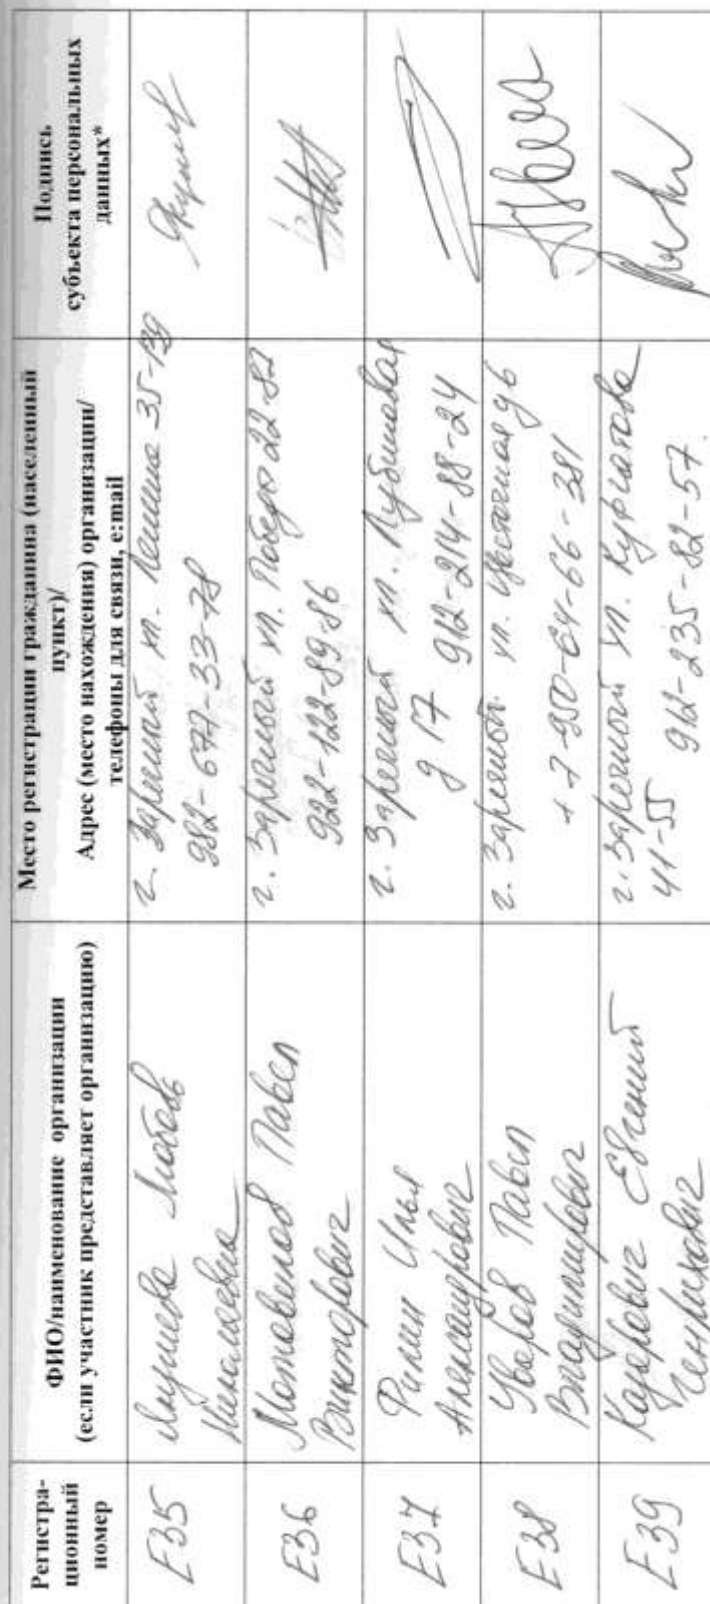 Регистра-
ционный
номер
ФИО/наименование организации
(если участник представляет организацию)
Место регистрации гражданина (населенный
пункт)/
Адрес (место нахождения) организации/
телефоны для связи, e:mail
Подпись
субъекта персональных
данных*
Е35
Любовь
Николаевна
г. Заречный ул. Ленина 35-139
982-677-33-78
Е36
Мотовилов Павел
Викторович
г. Заречный ул. Победы 22-82
922-122-89-86
Е37
Филин Илья
Александрович
г. Заречный ул.
д 17 912-214-88-24
Е38
Уваров Павел
Владимирович
г. Заречный. ул. д6
+7-950-64-66-381
Е39
Евгений
Генрихович
г. Заречный ул. Курчатова
41-55 912-235-82-57.